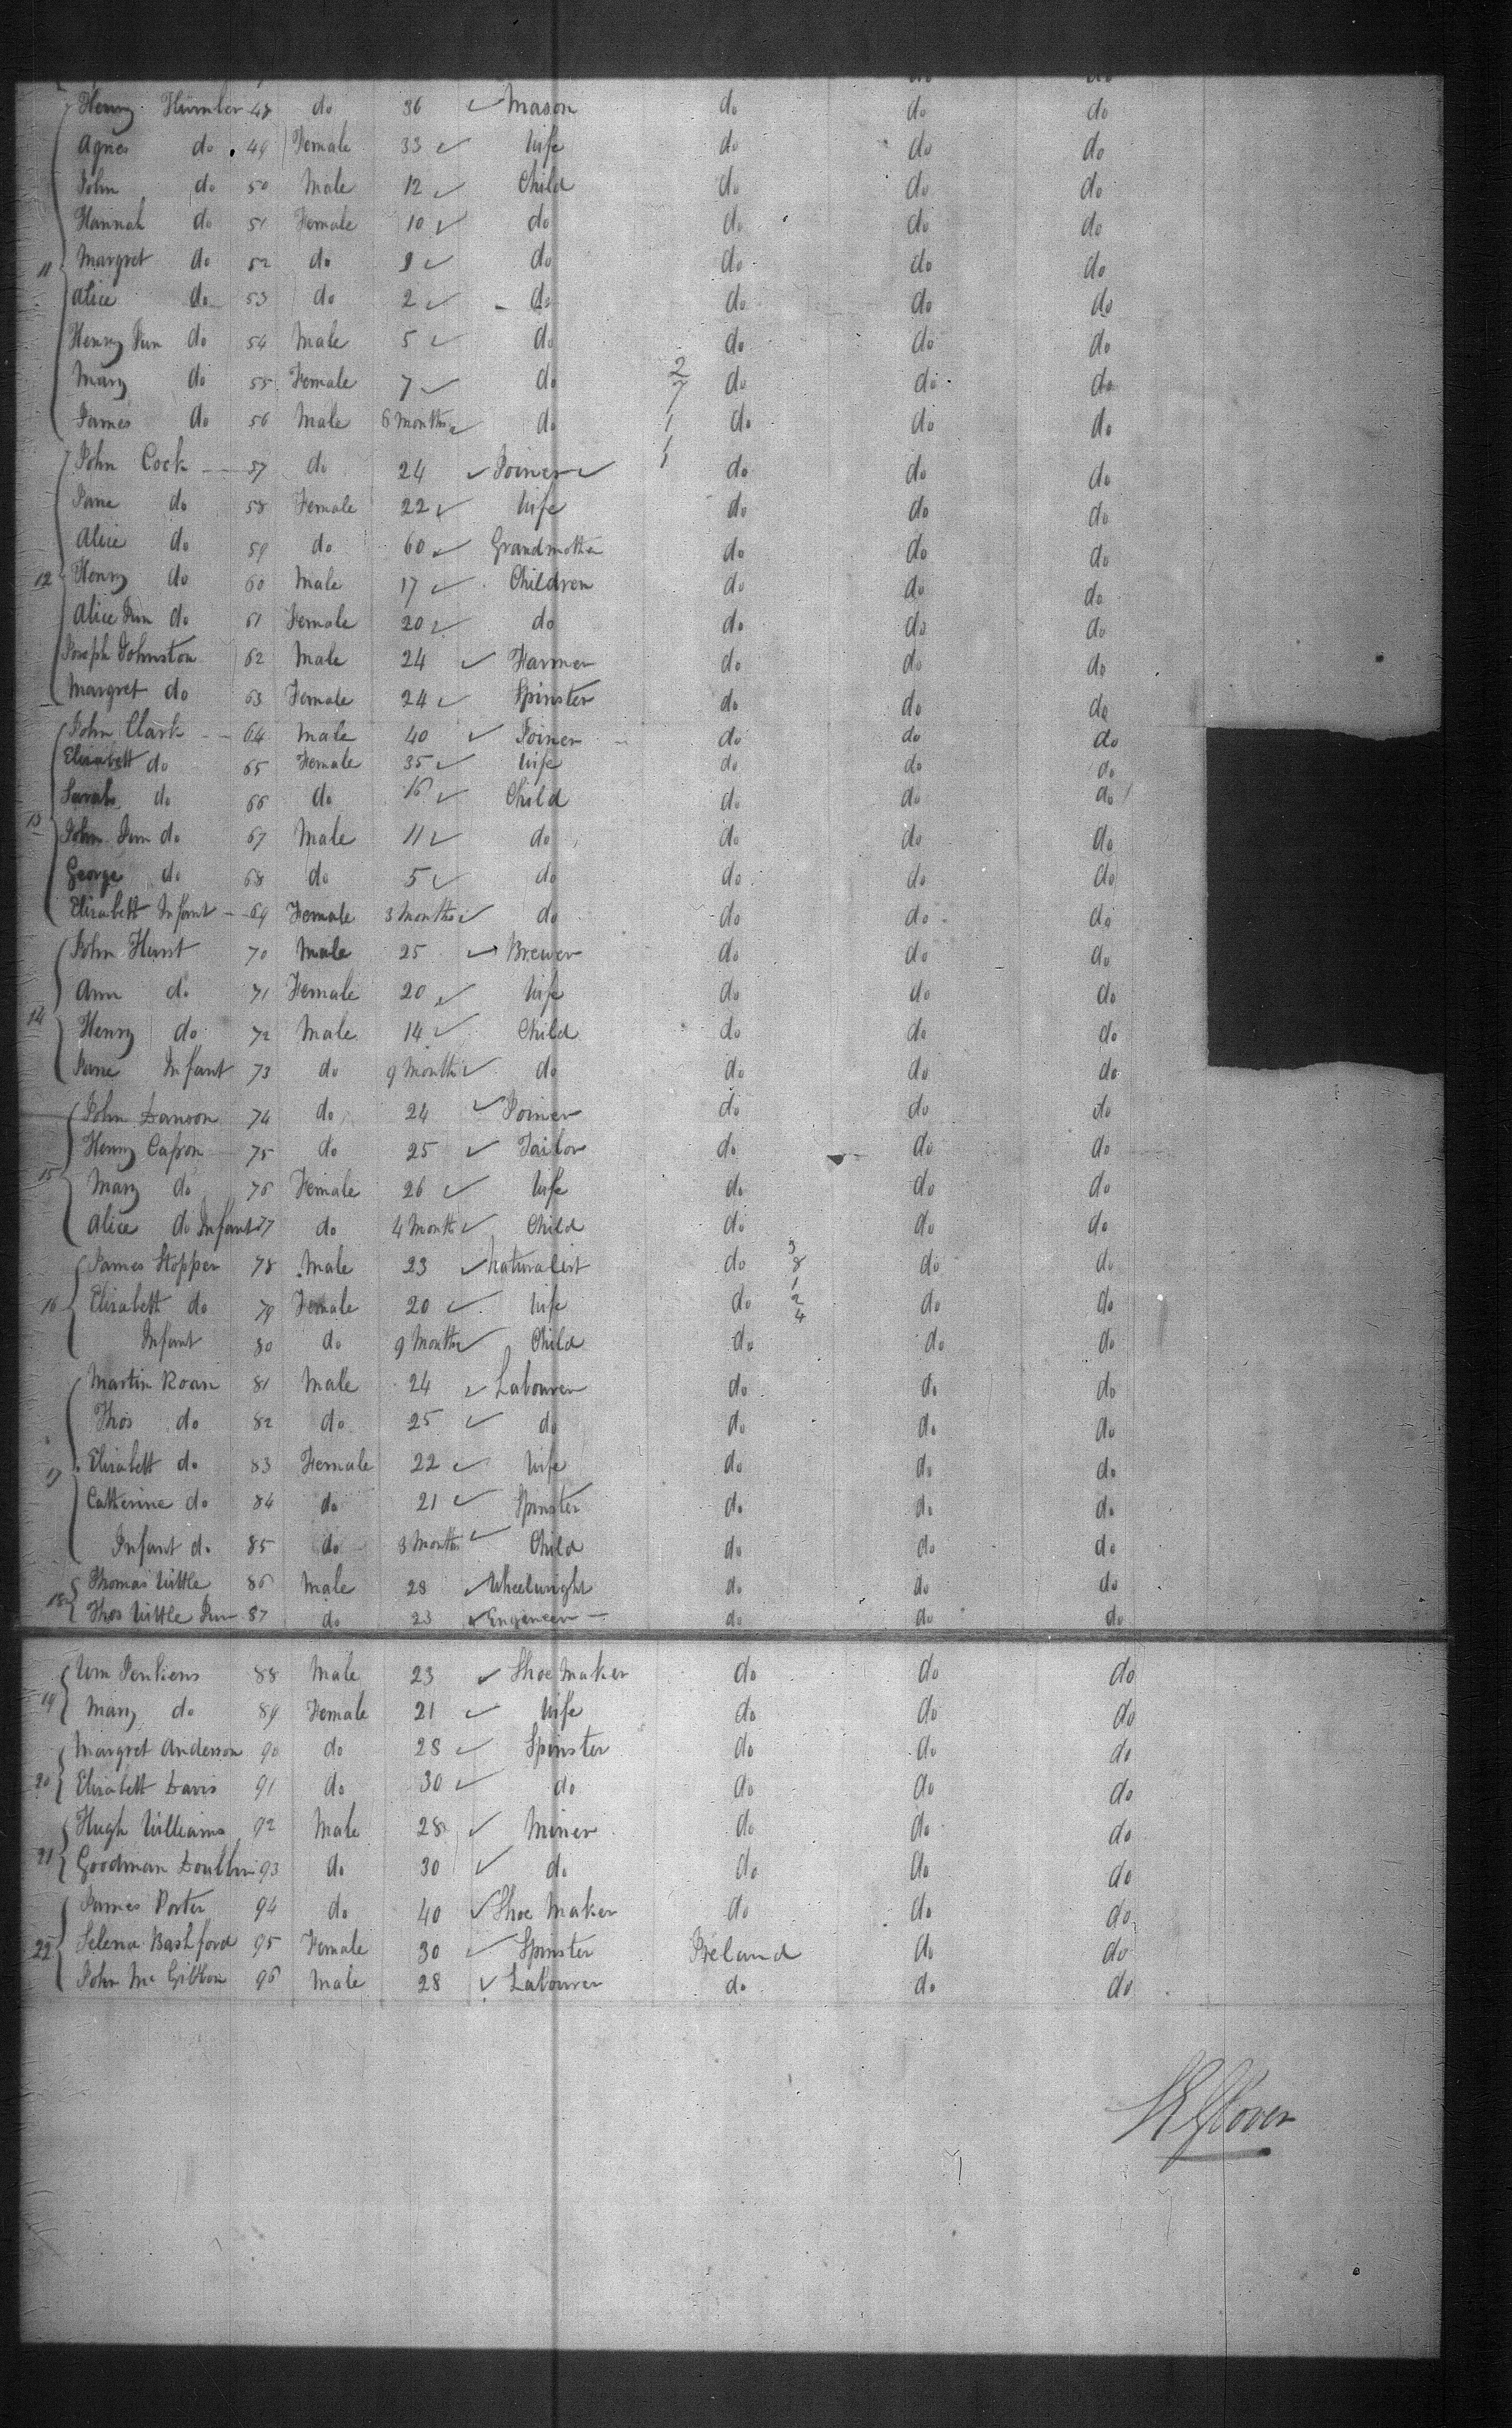 do do
Henry Humber 48 do 36 ✓ Mason do do do
Agnes do 49 Female 33 ✓ Wife do do do
John do 50 Male 12 ✓ Child do do do
Hannah do 51 Female 10 ✓ do do do do
11 Margret do 52 do 9 ✓ do do do do
Alice do 53 do 2 ✓ do do do do
Henry Jun do 54 Male 5 ✓ do do do do
Mary do 55 Female 7 ✓ do 2 7 do do do
James do 56 Male 6 Months ✓ do 1 do do do
John Cock 57 do 24 ✓ Joiner ✓ 1 do do do
Jane do 58 Female 22 ✓ Wife do do do
Alice do 59 do 60 ✓ Grandmother do do do
12 Henry do 60 Male 17 ✓ Children do do do
Alice Jun do 61 Female 20 ✓ do do do do
Joseph Johnston 62 Male 24 ✓ Farmer do do do
Margret do 63 Female 24 ✓ Spinster do do do
John Clark 64 Male 40 ✓ Joiner do do do
Elizabett do 65 Female 35 ✓ Wife do do do
Sarah do 66 do 16 ✓ Child do do do
13 John Jun do 67 Male 11 ✓ do do do do
George do 68 do 5 ✓ do do do do
Elizabett Infant 69 Female 3 Months ✓ do do do do
John Hunt 70 Male 25 ✓ Brewer do do do
Ann do 71 Female 20 ✓ Wife do do do
14 Henry do 72 Male 14 ✓ Child do do do
Jane Infant 73 do 9 Months ✓ do do do do
John Danson 74 do 24 ✓ Joiner do do do
Henry Capon 75 do 25 ✓ Tailor do do do
15 Mary do 76 Female 26 ✓ Wife do do do
Alice do Infant 77 do 4 Months ✓ Child do do do
James Stopper 78 Male 23 ✓ Naturalist do 3 8 do do
16 Elizabett do 79 Female 20 ✓ Wife do 1 2 4 do do
Infant 80 do 9 Months ✓ Child do do do
Martin Roan 81 Male 24 ✓ Labourer do do do
Thos do 82 do 25 ✓ do do do do
17 Elizabett do 83 Female 22 ✓ Wife do do do
Catherine do 84 do 21 ✓ Spinster do do do
Infant do 85 do 3 Months ✓ Child do do do
18 Thomas Little 86 Male 28 ✓ Wheelwright do do do
Thos Little Jun 87 do 23 ✓ Engeneer do do do
Wm Jenkiens 88 Male 23 ✓ Shoe Maker do do do
19 Mary do 89 Female 21 ✓ Wife do do do
Margret Anderson 90 do 28 ✓ Spinster do do do
20 Elizabett Davis 91 do 30 ✓ do do do do
Hugh Williams 92 Male 28 ✓ Miner do do do
21 Goodman 93 do 30 ✓ do do do do
James Porter 94 do 40 ✓ Shoe Maker do do do
22 Selena Bashford 95 Female 30 ✓ Spinster Ireland do do
John Mc Gibbon 96 Male 28 ✓ Labourer do do do
Glover